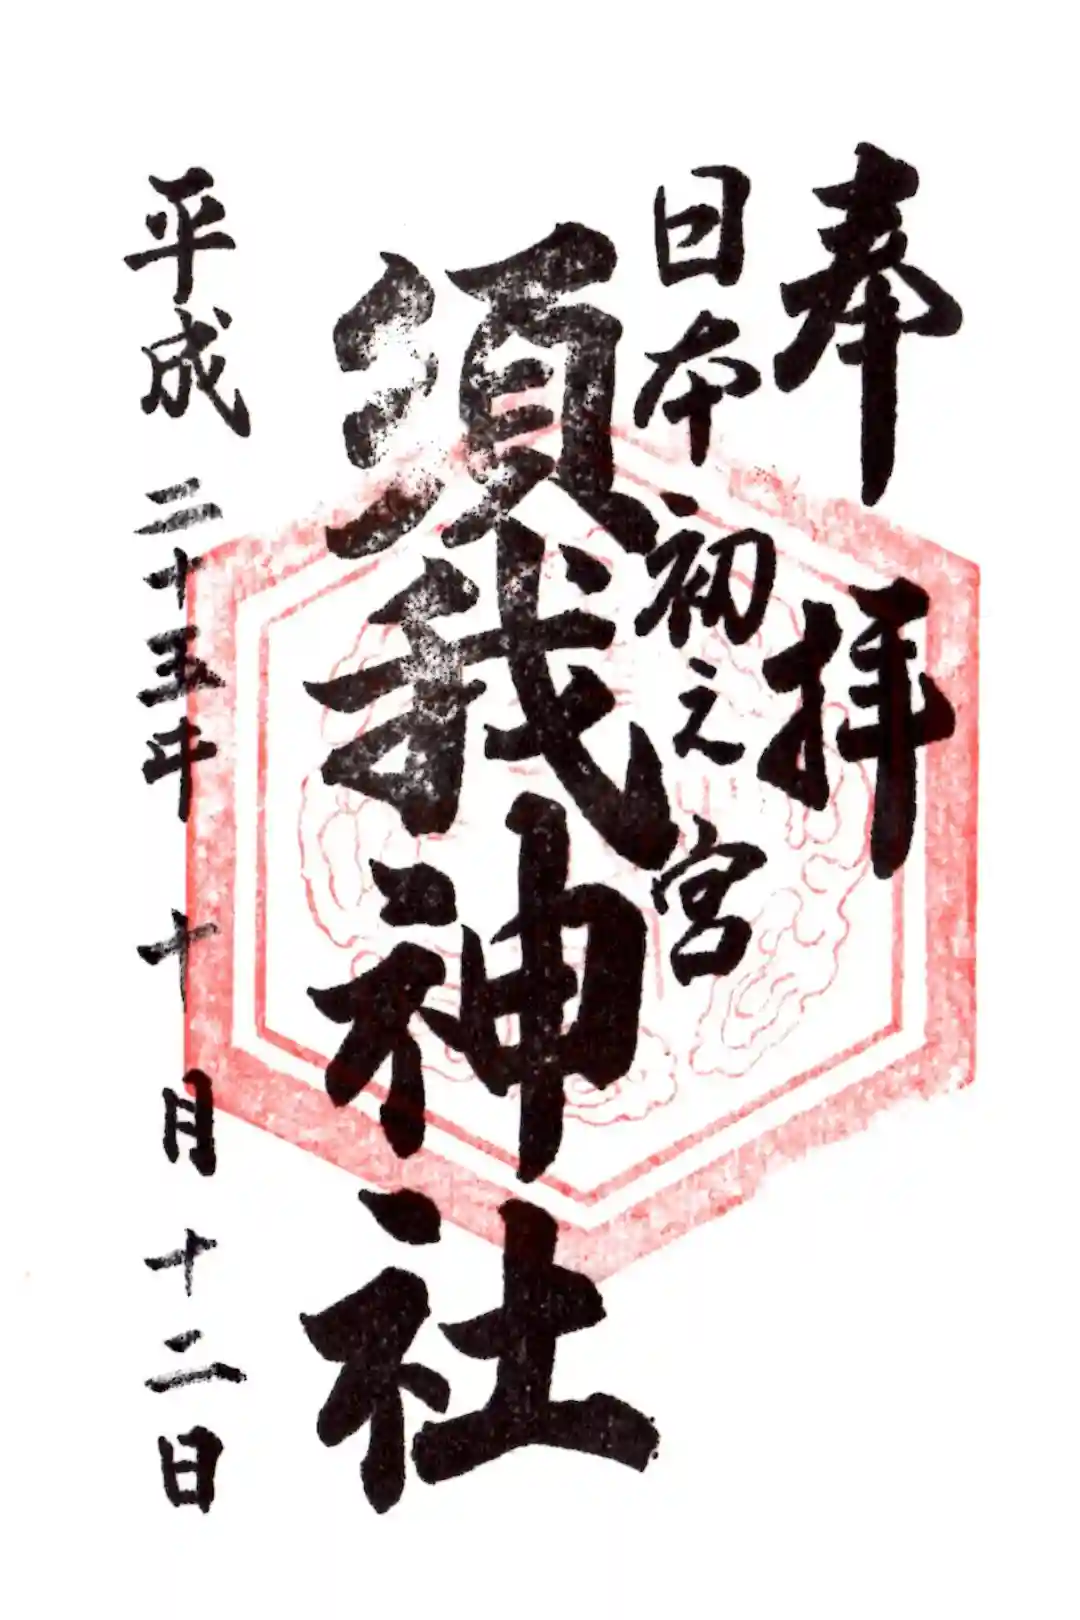 奉拝
日本初之宮
須我神社
平成二十五年十月十二日